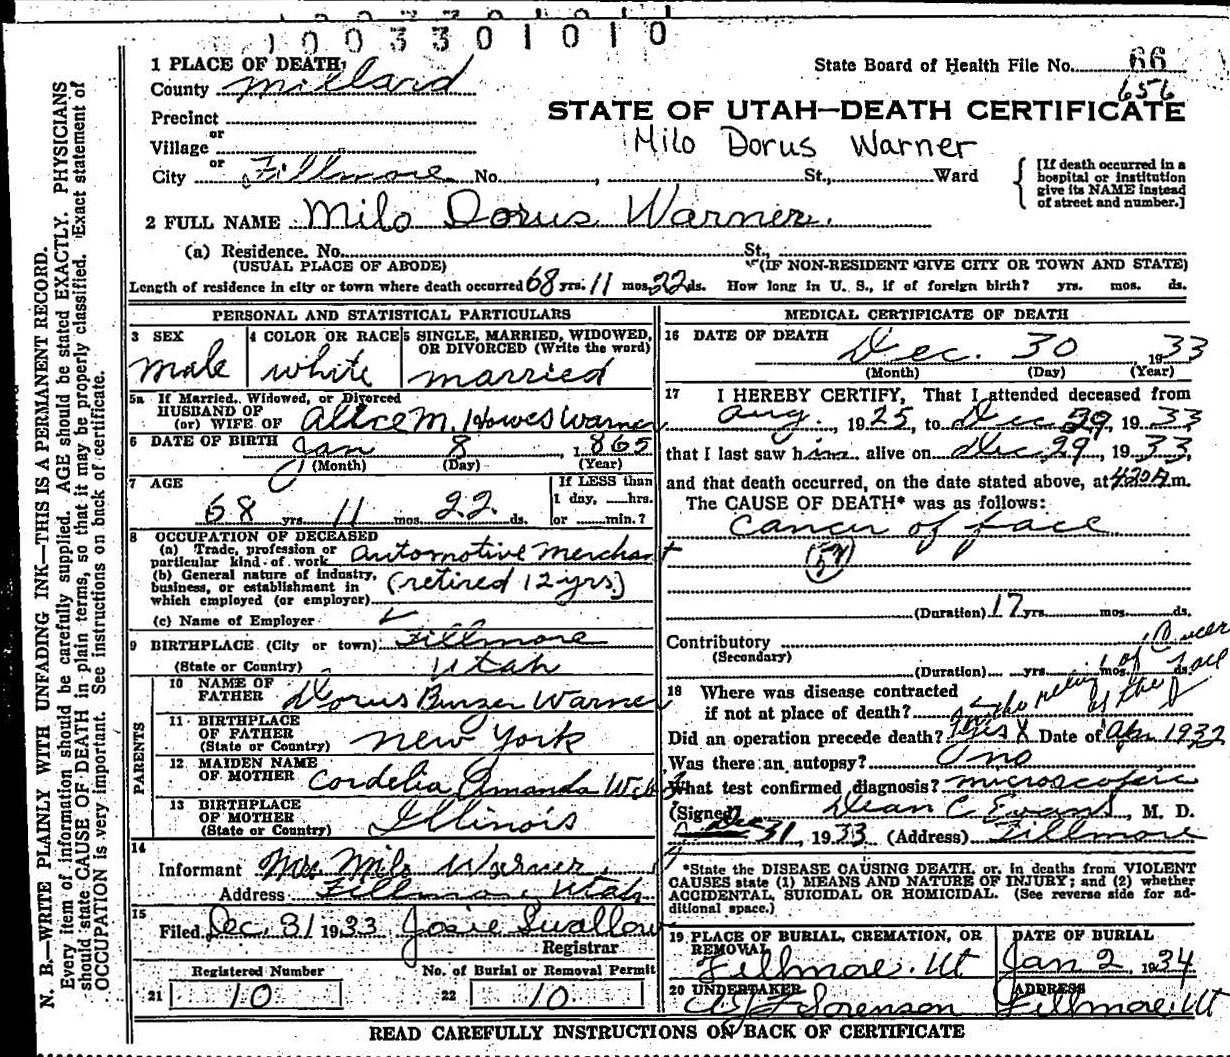 1 0 0 3 3 0 1 0 1 0
1 PLACE OF DEATH
State Board of Health File No. 66
656
County Millard
STATE OF UTAH—DEATH CERTIFICATE
Precinct
or
Village
Milo Dorus Warner
or
City Fillmore No. , St., Ward
[If death occurred in a
hospital or institution
give its NAME instead
of street and number.]
2 FULL NAME Milo Dorus Warner.
(a) Residence. No. St.,
(USUAL PLACE OF ABODE) (IF NON-RESIDENT GIVE CITY OR TOWN AND STATE)
Length of residence in city or town where death occurred 68 yrs. 11 mos. 22 ds. How long in U. S., if of foreign birth? yrs. mos. ds.
PERSONAL AND STATISTICAL PARTICULARS
3 SEX
male
4 COLOR OR RACE
white
5 SINGLE, MARRIED, WIDOWED,
OR DIVORCED (Write the word)
married
5a If Married, Widowed, or Divorced
HUSBAND OF
(or) WIFE OF Allice M. Howes Warner
6 DATE OF BIRTH
Jan 8, 1865
(Month) (Day) (Year)
7 AGE
68 yrs. 11 mos. 22. ds.
If LESS than
1 day, hrs.
or min.?
8 OCCUPATION OF DECEASED
(a) Trade, profession or
particular kind of work Automotive Merchant
(b) General nature of industry,
business, or establishment in
which employed (or employer) (retired 12 yrs.)
(c) Name of Employer
9 BIRTHPLACE (City or town) Fillmore
(State or Country) Utah
PARENTS
10 NAME OF
FATHER Dorus Warner
11 BIRTHPLACE
OF FATHER
(State or Country) New York
12 MAIDEN NAME
OF MOTHER Cordelia Amanda Webb
13 BIRTHPLACE
OF MOTHER
(State or Country) Illinois
14
Informant Mrs Milo Warner
Address Fillmore, Utah
15
Filed Dec. 31 1933 Josie Swallow
Registrar
Registered Number
21 10
No. of Burial or Removal Permit
22 10
MEDICAL CERTIFICATE OF DEATH
16 DATE OF DEATH
Dec. 30, 1933
(Month) (Day) (Year)
17 I HEREBY CERTIFY, That I attended deceased from
Aug., 1925, to Dec 29, 1933
that I last saw him alive on Dec. 29, 1933,
and that death occurred, on the date stated above, at m.
The CAUSE OF DEATH* was as follows:
Cancer of face
(Duration) 17 yrs. mos. ds.
Contributory
(Secondary)
(Duration) yrs. mos. ds.
18 Where was disease contracted
if not at place of death?
of Cancer
of the face
Did an operation precede death? Yes X Date of Apr. 1932
Was there an autopsy? no
What test confirmed diagnosis? microscopic
(Signed) Dean C. Evans, M. D.
Dec 31, 1933 (Address) Fillmore
*State the DISEASE CAUSING DEATH, or, in deaths from VIOLENT
CAUSES state (1) MEANS AND NATURE OF INJURY; and (2) whether
ACCIDENTAL, SUICIDAL OR HOMICIDAL. (See reverse side for ad-
ditional space.)
19 PLACE OF BURIAL, CREMATION, OR
REMOVAL
Fillmore. Ut
DATE OF BURIAL
Jan 2, 1934
20 UNDERTAKER
Sorenson
ADDRESS
Fillmore, Ut
READ CAREFULLY INSTRUCTIONS ON BACK OF CERTIFICATE
N. B.—WRITE PLAINLY WITH UNFADING INK—THIS IS A PERMANENT RECORD.
Every item of information should be carefully supplied. AGE should be stated EXACTLY. PHYSICIANS
should state CAUSE OF DEATH in plain terms, so that it may be properly classified. Exact statement of
OCCUPATION is very important. See instructions on back of certificate.